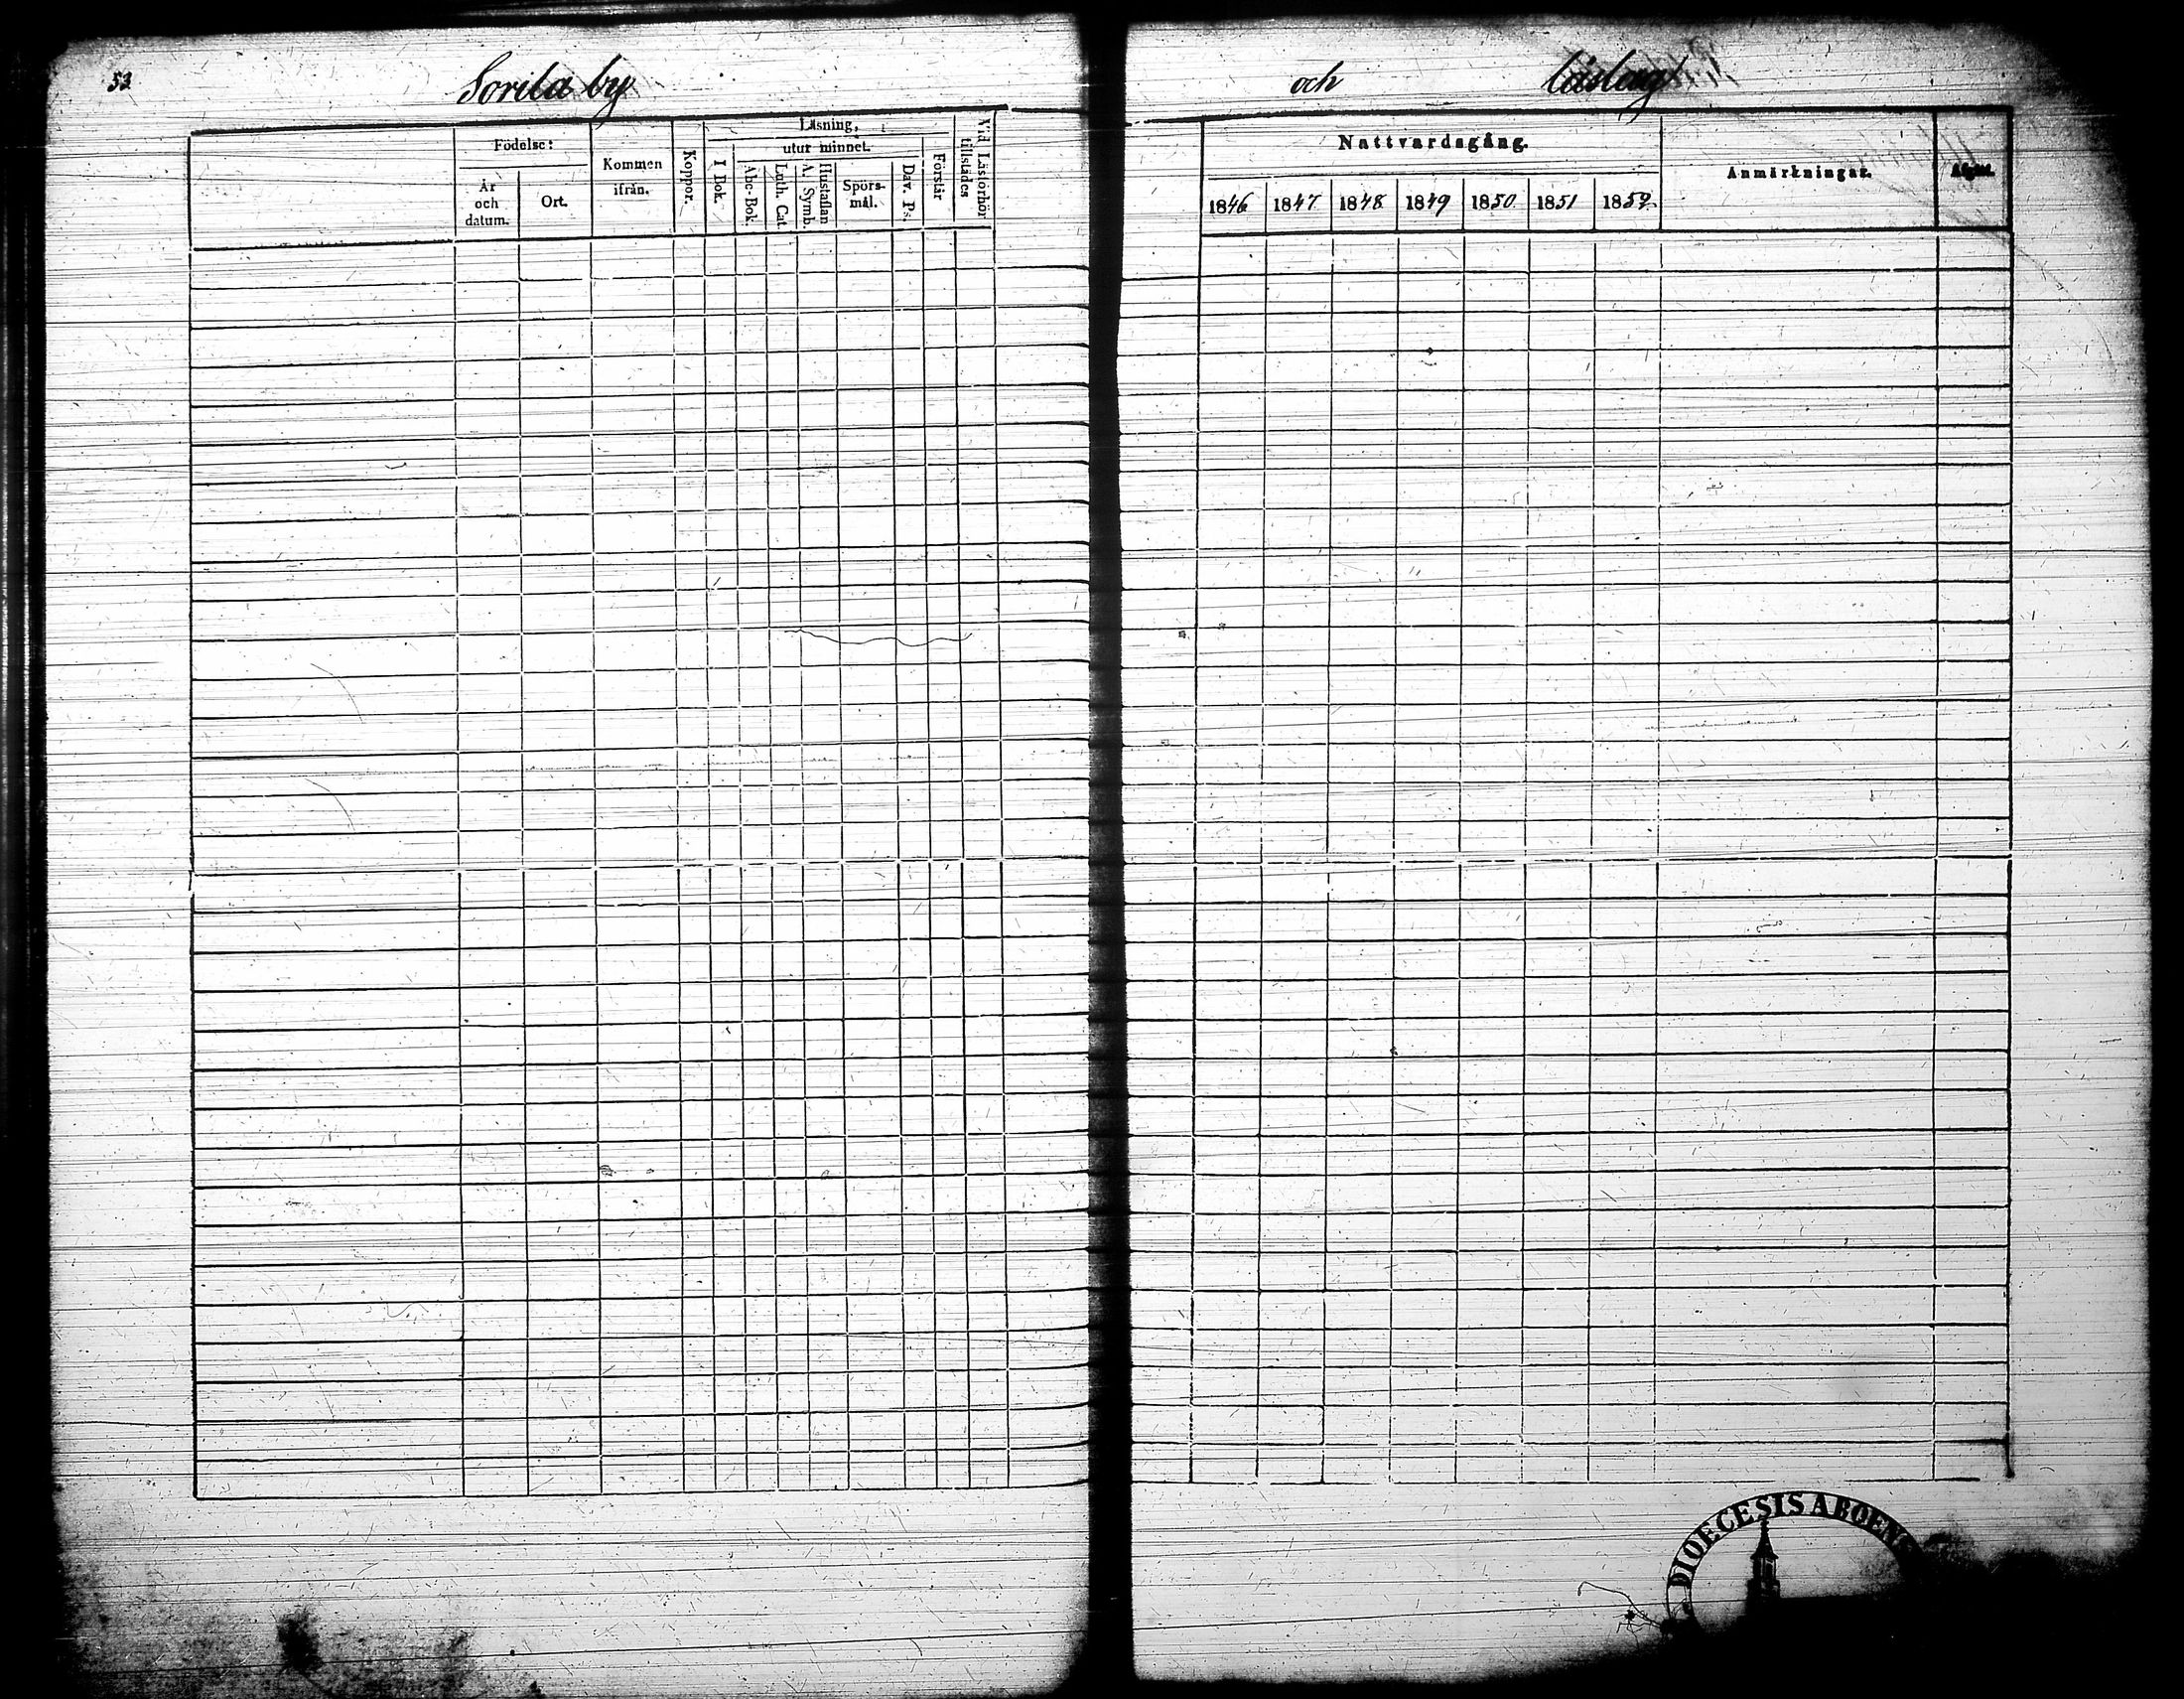 53
Sorila by
och
läslag
Födelse:
År och datum.
Ort.
Kommen ifrån.
Koppor.
Läsning,
utur minnet.
I Bok.
Abc-Bok.
Luth. Cat.
Hustaflan A. Symb.
Spörs-mål.
Dav. Ps.
Förstår
Vid Läsförhör tillstädes
Nattvardsgång.
1846 1847 1848 1849 1850 1851 1852
Anmärkningar.
DIOECESIS ABOENS